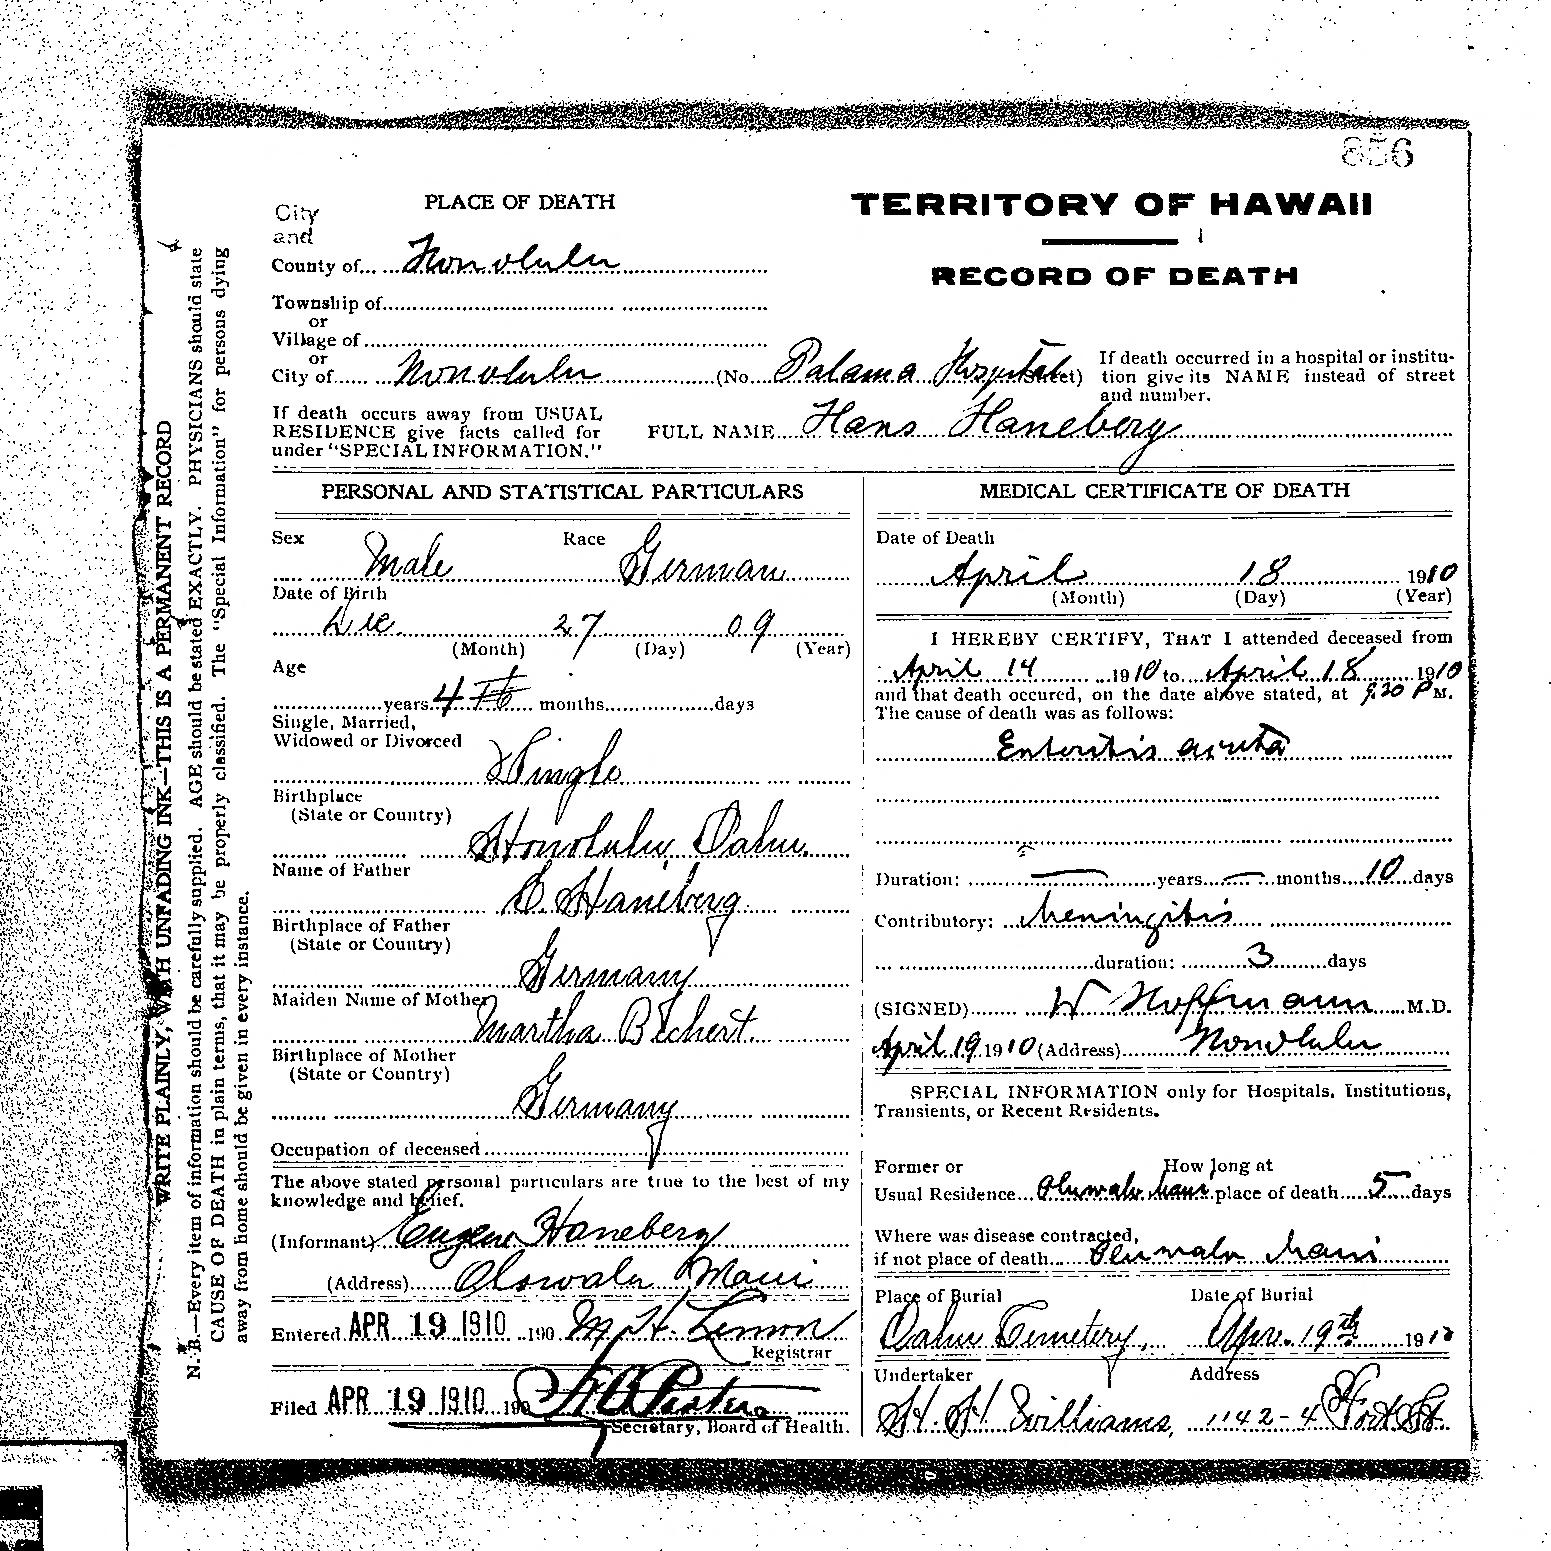 856
TERRITORY OF HAWAII
RECORD OF DEATH
PLACE OF DEATH
City
and
County of Honolulu
Township of
or
Village of
or
City of Honolulu (No. Palama Hospital Street)
If death occurred in a hospital or institu-
tion give its NAME instead of street
and number.
If death occurs away from USUAL
RESIDENCE give facts called for
under "SPECIAL INFORMATION."
FULL NAME Hans Haneberg
PERSONAL AND STATISTICAL PARTICULARS
Sex Male Race German
Date of Birth
Dec 27 09
(Month) (Day) (Year)
Age
years 4 months days
Single, Married,
Widowed or Divorced
Single
Birthplace
(State or Country)
Honolulu Oahu
Name of Father
E. Haneberg
Birthplace of Father
(State or Country)
Germany
Maiden Name of Mother
Martha
Birthplace of Mother
(State or Country)
Germany
Occupation of deceased
The above stated personal particulars are true to the best of my
knowledge and belief.
(Informant) Eugene Haneberg
(Address) Olowalu Maui
Entered APR 19 1910 190 M. H. Lemon
Registrar
Filed APR 19 1910 190
Secretary, Board of Health.
MEDICAL CERTIFICATE OF DEATH
Date of Death
April 18 1910
(Month) (Day) (Year)
I HEREBY CERTIFY, THAT I attended deceased from
April 14 1910 to April 18 1910
and that death occured, on the date above stated, at 9.20 P M.
The cause of death was as follows:
Enteritis acuta
Duration: — years — months 10 days
Contributory: Meningitis
duration: 3 days
(SIGNED) W Hoffmann M.D.
April 19 1910 (Address) Honolulu
SPECIAL INFORMATION only for Hospitals, Institutions,
Transients, or Recent Residents.
Former or How long at
Usual Residence Oluwalu Maui place of death 5 days
Where was disease contracted,
if not place of death Oluwalu Maui
Place of Burial Date of Burial
Oahu Cemetery, Apr. 19th 1910
Undertaker Address
H. H. Williams, 1142-4 Fort St.
WRITE PLAINLY, WITH UNFADING INK—THIS IS A PERMANENT RECORD
N. B.—Every item of information should be carefully supplied. AGE should be stated EXACTLY. PHYSICIANS should state
CAUSE OF DEATH in plain terms, that it may be properly classified. The "Special Information" for persons dying
away from home should be given in every instance.